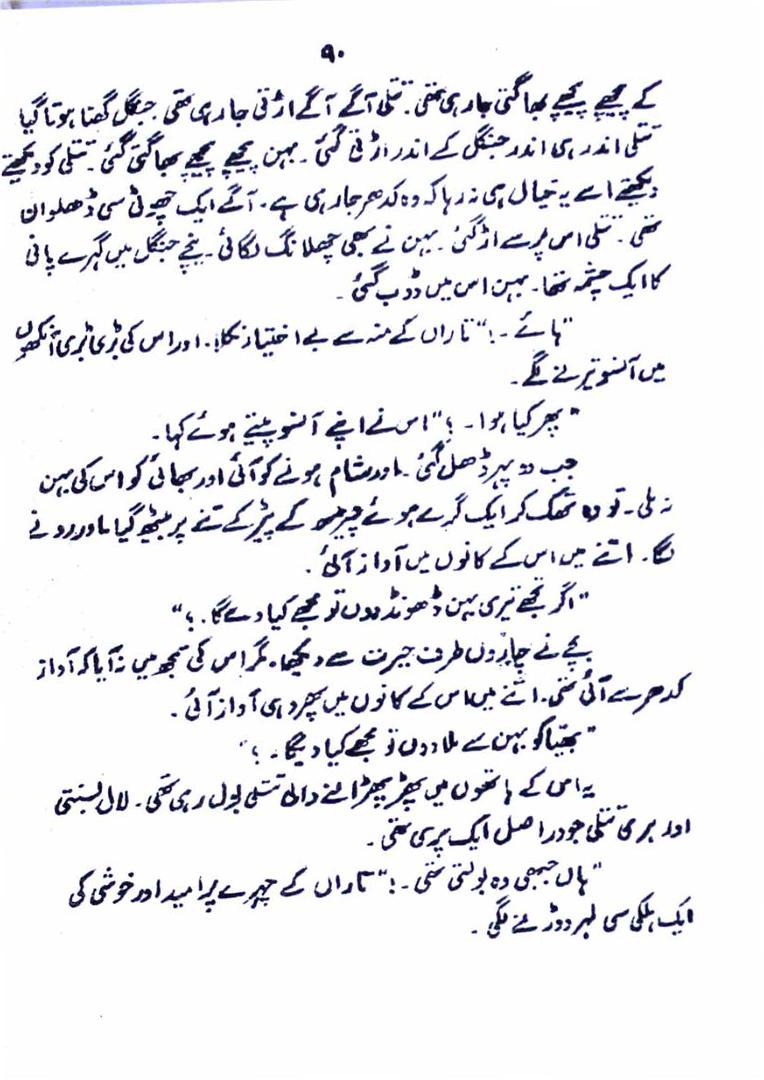 ۹۰
کے پیچھے پیچھے بھاگتی جا رہی تھی۔ تتلی آگے آگے اڑتی جا رہی تھی۔ جنگل گھنا ہوتا گیا
تتلی اندر ہی اندر جنگل کے اندر اڑتی گئی۔ بہن پیچھے پیچھے بھاگتی گئی۔ تتلی کو دیکھتے
دیکھتے اسے یہ خیال ہی نہ رہا کہ وہ کدھر جا رہی ہے۔ آگے ایک چھوٹی سی ڈھلوان
تھی۔ تتلی اس پر سے اڑ گئی۔ بہن نے بھی چھلانگ لگائی۔ نیچے جنگل میں گہرے پانی
کا ایک چشمہ تھا۔ بہن اس میں ڈوب گئی۔
"ہائے۔!" تاراں کے منہ سے بے اختیار نکلا۔ اور اس کی بڑی بڑی آنکھوں
میں آنسو تیرنے لگے۔
"پھر کیا ہوا۔؟" اس نے اپنے آنسو پیتے ہوئے کہا۔
جب دوپہر ڈھل گئی۔ اور شام ہونے کو آئی اور بھائی کو اس کی بہن
نہ ملی۔ تو وہ تھک کر ایک گرے ہوئے چیڑھ کے پیڑ کے تنے پر بیٹھ گیا۔ اور رونے
لگا۔ اتنے میں اس کے کانوں میں آواز آئی۔
"اگر تجھے تیری بہن ڈھونڈ دوں تو مجھے کیا دے گا۔؟"
بچے نے چاروں طرف حیرت سے دیکھا۔ مگر اس کی سمجھ میں نہ آیا کہ آواز
کدھر سے آئی تھی۔ اتنے میں اس کے کانوں میں پھر وہی آواز آئی۔
"بھیا کو بہن سے ملا دوں تو مجھے کیا دیگا۔؟"
یہ اس کے ہاتھوں میں پھڑپھڑانے والی تتلی بول رہی تھی۔ لال بسنتی
اور ہری تتلی جو دراصل ایک پری تھی۔
"ہاں جبھی وہ بولتی تھی۔!" تاراں کے چہرے پر امید اور خوشی کی
ایک ہلکی سی لہر دوڑنے لگی۔